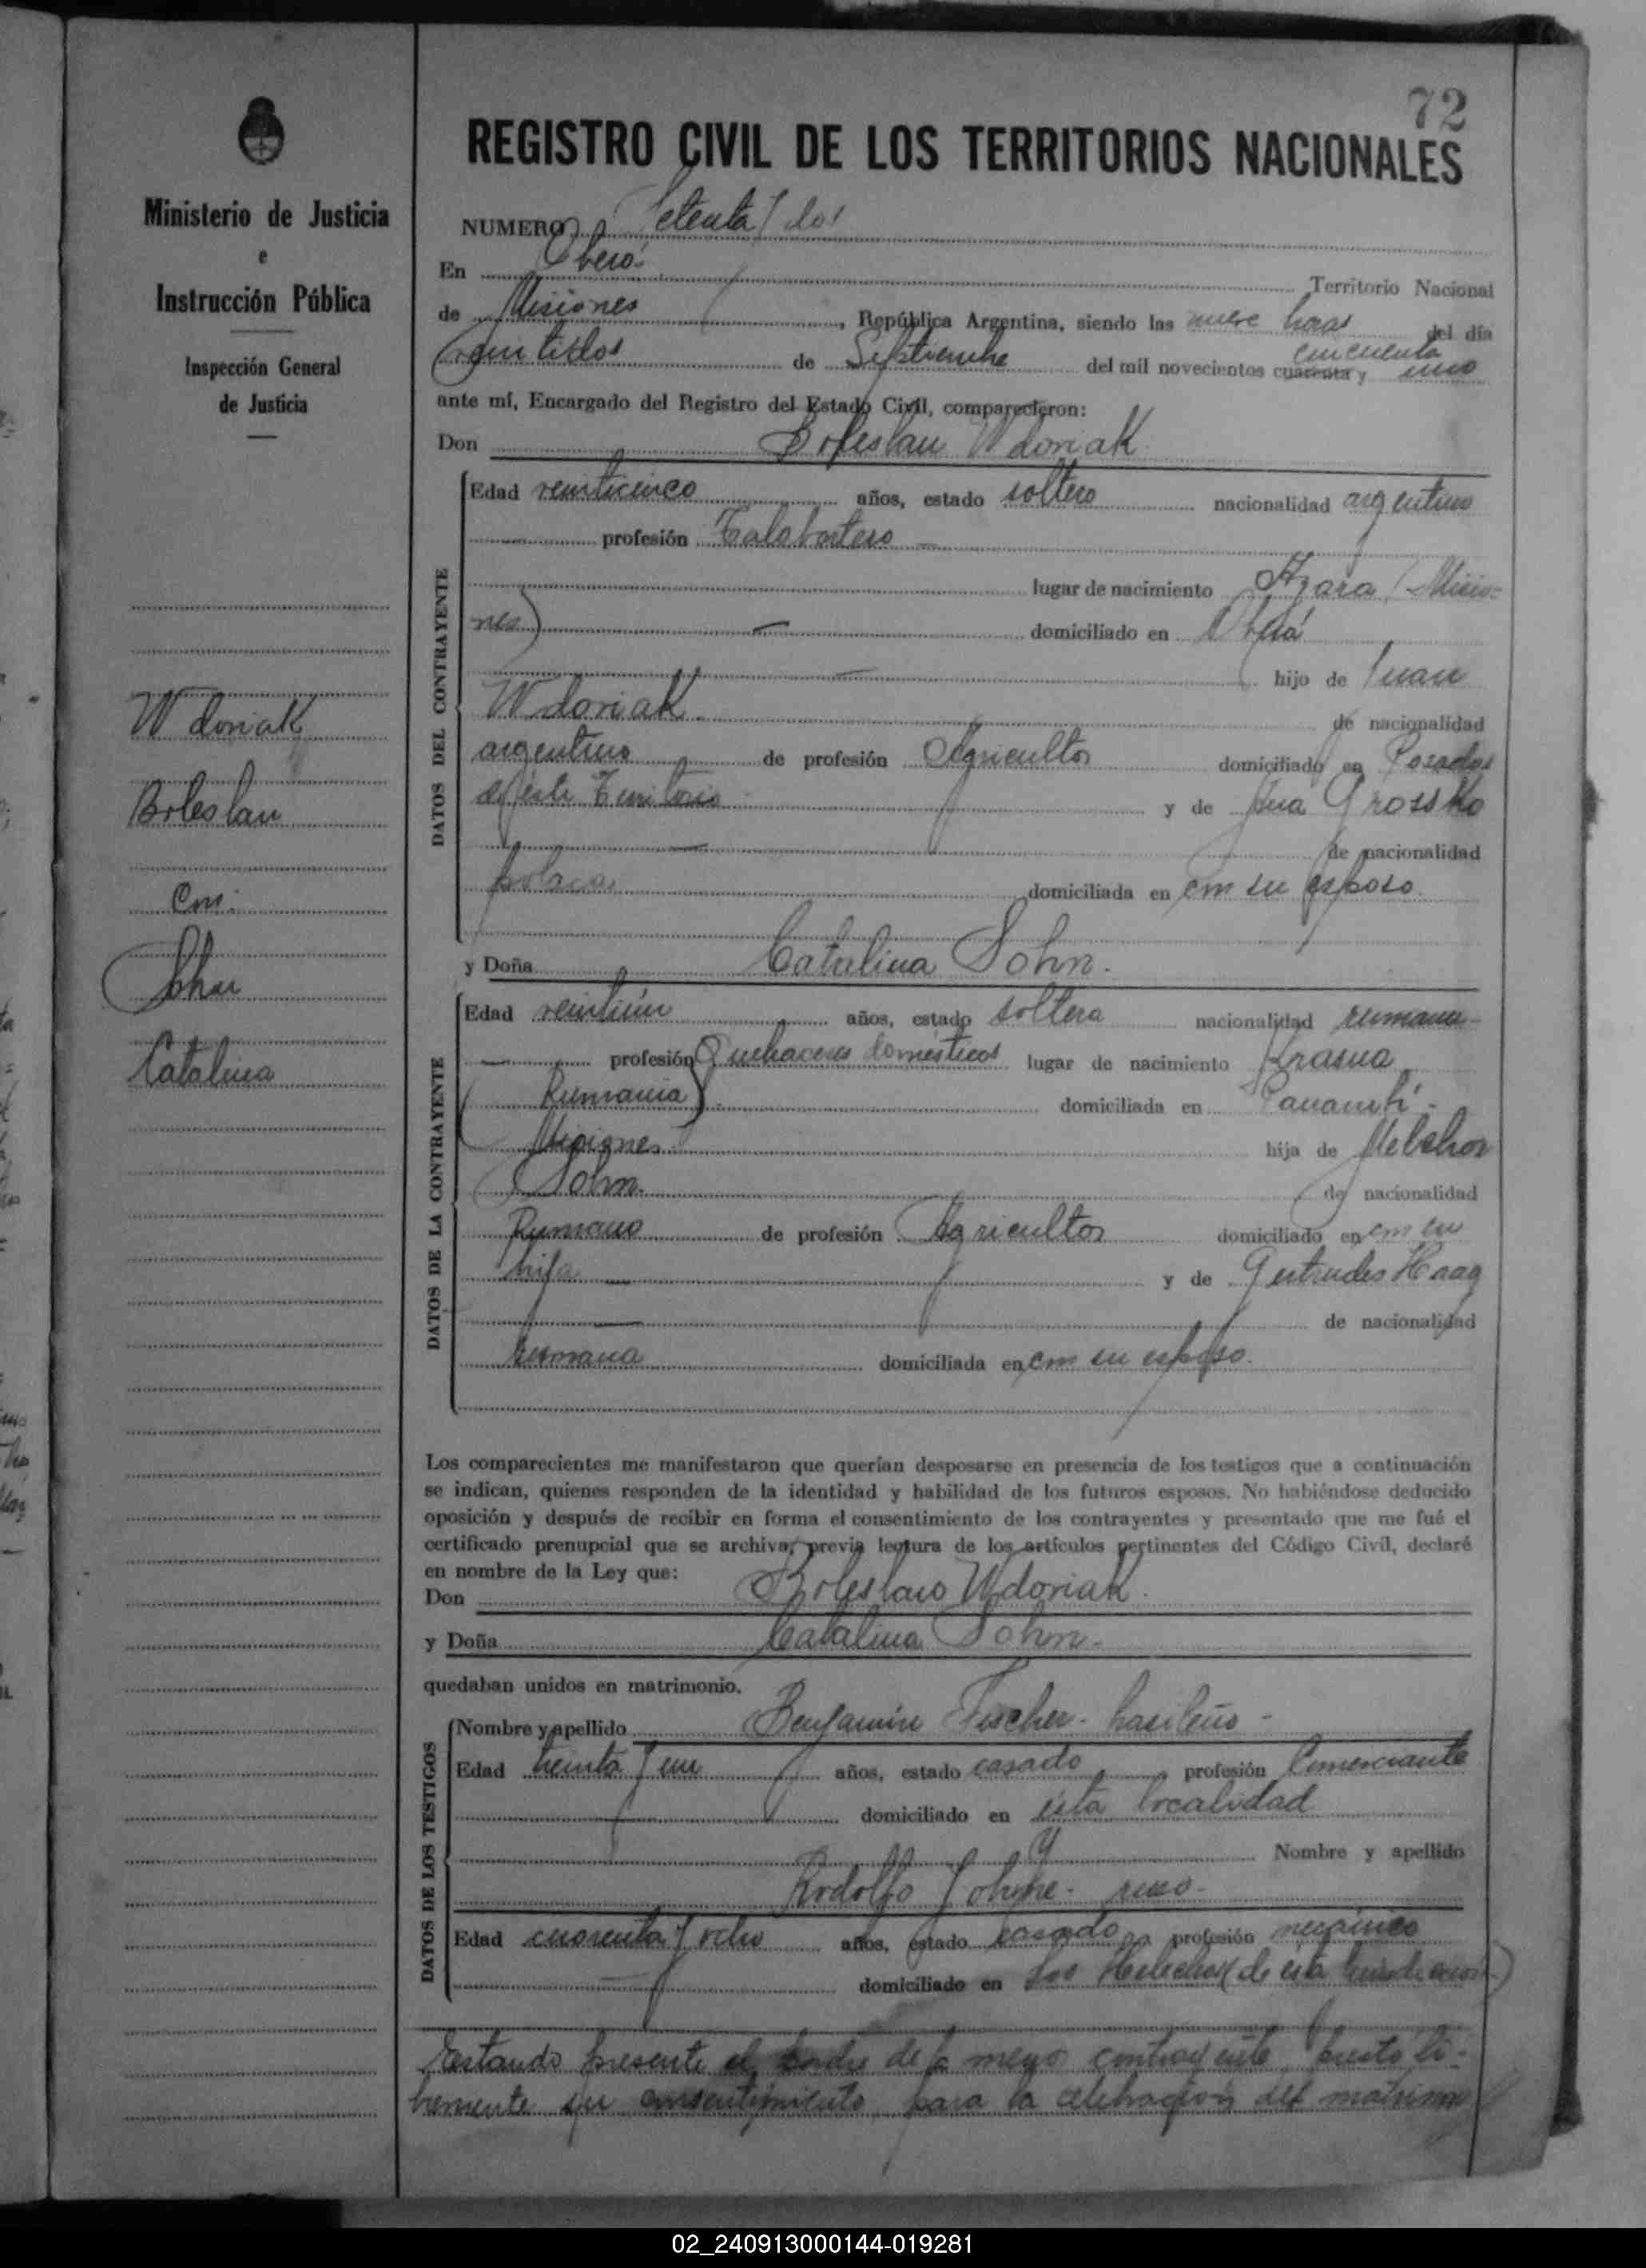 72
REGISTRO CIVIL DE LOS TERRITORIOS NACIONALES
Ministerio de Justicia
e
Instrucción Pública
Inspección General
de Justicia
Wdoviak
Boleslau
Con:
Sohn
Catalina
NUMERO Setenta y dos
En Oberá. Territorio Nacional
de Misiones, República Argentina, siendo las nueve horas del día
veintidos de Septiembre del mil novecientos cuarenta y cincuenta uno
ante mí, Encargado del Registro del Estado Civil, comparecieron:
Don Boleslau Wdoviak
DATOS DEL CONTRAYENTE
Edad veinticinco años, estado soltero nacionalidad argentino
profesión Talabartero
lugar de nacimiento Azara (Misio-
nes) domiciliado en Oberá
hijo de Juan
Wdoviak de nacionalidad
argentino de profesión Agricultor domiciliado en Posadas
de éste Territorio y de Ana Grossko
de nacionalidad
polaca domiciliada en con su esposo
y Doña Catalina Sohn.
DATOS DE LA CONTRAYENTE
Edad veintiún años, estado soltera nacionalidad rumana
profesión Quehaceres domésticos lugar de nacimiento Krasna
(Rumania) domiciliada en Panambí -
Misiones hija de Melchor
Sohn. de nacionalidad
Rumano de profesión Agricultor domiciliado en con su
hija y de Gertrudes Haag
de nacionalidad
rumana domiciliada en con su esposo.
Los comparecientes me manifestaron que querían desposarse en presencia de los testigos que a continuación
se indican, quienes responden de la identidad y habilidad de los futuros esposos. No habiéndose deducido
oposición y después de recibir en forma el consentimiento de los contrayentes y presentado que me fué el
certificado prenupcial que se archiva, previa lectura de los artículos pertinentes del Código Civil, declaré
en nombre de la Ley que:
Don Boleslavo Wdoviak
y Doña Catalina Sohn.
quedaban unidos en matrimonio.
DATOS DE LOS TESTIGOS
Nombre y apellido Benjamín Fischer - brasileño -
Edad treinta y un años, estado casado profesión Comerciante
domiciliado en ésta localidad
y Nombre y apellido
Rodolfo - ruso -
Edad cuarenta y ocho años, estado casado profesión mecánico
domiciliado en Los Helechos (de ésta jurisdicción)
Estando presente el padre de la menor contrayente presta li-
bremente su consentimiento para la celebración del matrimo
02_240913000144-019281